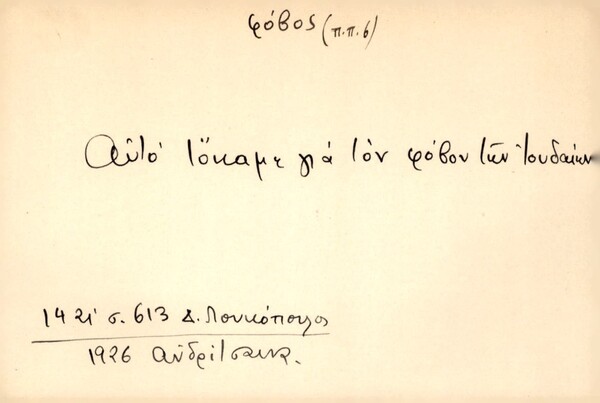 φόβος (π.π. 6)
Αὐτό τὄκαμε γιά τόν φόβον τῶν Ἰουδαίων
1421 σ. 613 Δ. Λουκόπουλος
1926 Ἀνδρίτσαινα.